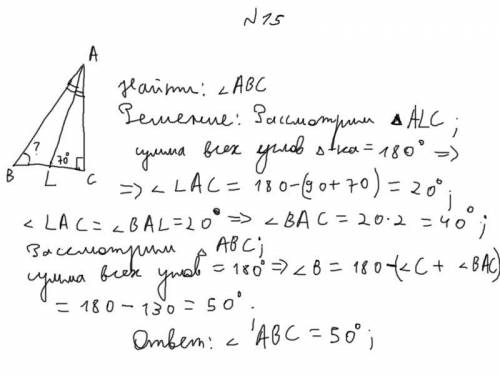 №15
A
Найти: ∠ABC
Решение: Рассмотрим △ALC;
сумма всех углов △-ка = 180° =>
=> ∠LAC = 180-(90+70) = 20°;
? 70°
B L C
∠LAC = ∠BAL = 20° => ∠BAC = 20·2 = 40°;
Рассмотрим △ABC;
сумма всех углов = 180° => ∠B = 180-(∠C + ∠BAC)
= 180 - 130 = 50°.
Ответ: ∠ABC = 50°;